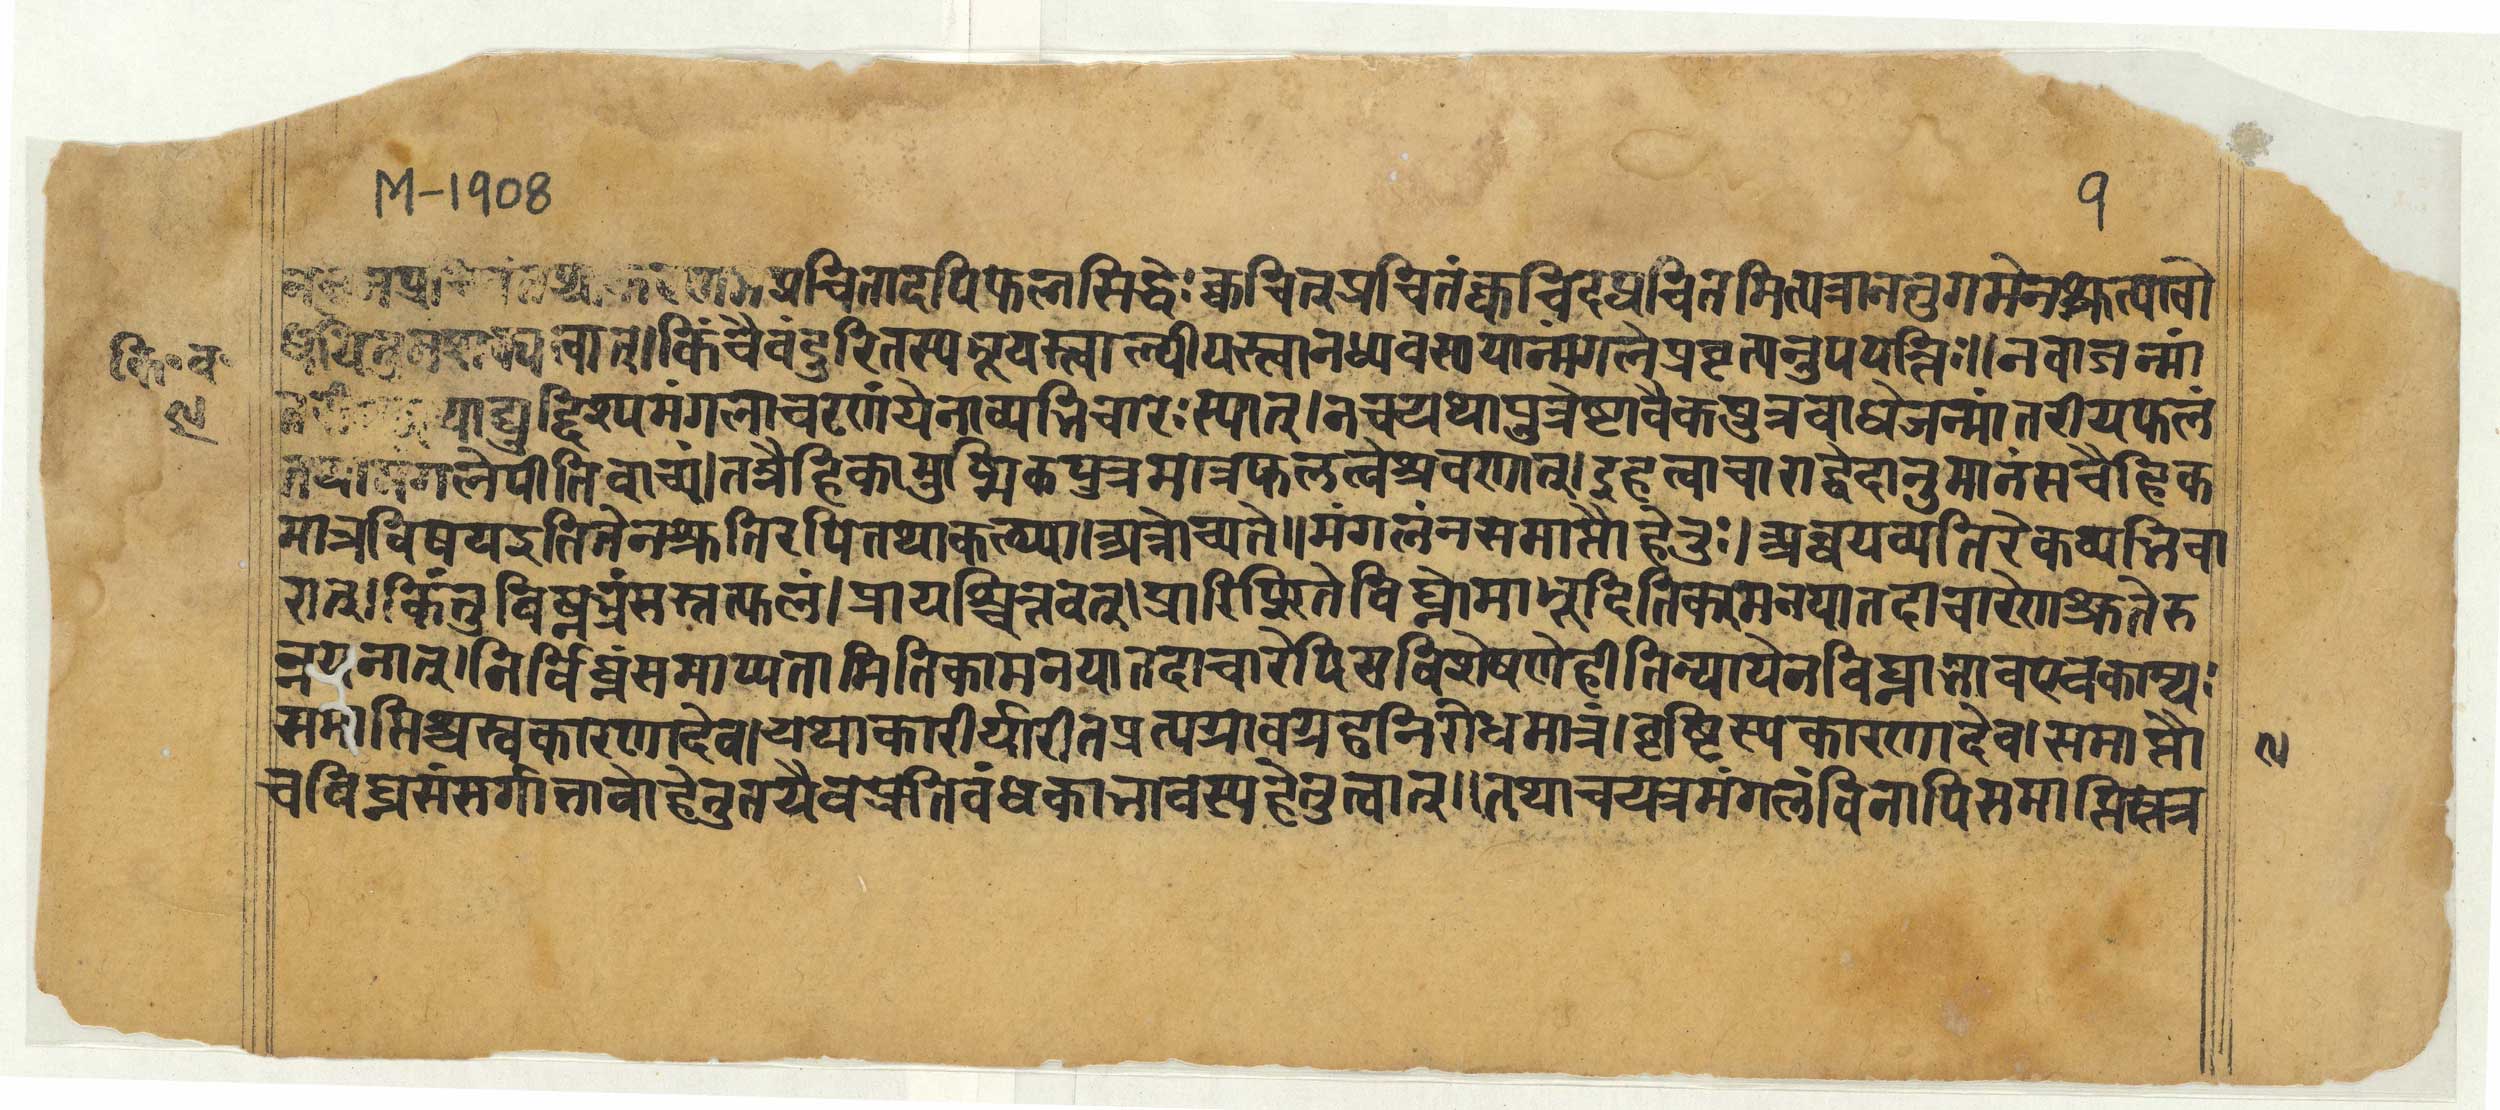 M-1908
१
प्रचितादपिफलसिद्धेः क्वचित्प्रचितंक्वचिदप्रचितमित्यत्राननुगमेनश्रुत्यावो
त्वात्।किंचैवंदुरितस्यभूयस्त्वाल्पीयस्त्वानध्यवसायान्मंगलेप्रवृत्यनुपपत्तिः॥नवाजन्मां
कि॰व॰
याद्युद्दिश्यमंगलाचरणंयेनाव्यभिचारःस्यात्।नचयथापुत्रेष्टावैकपुत्रबाधेजन्मांतरीयफलं
मंगलेपीतिवाच्यं।तत्रैहिकामुष्मिकपुत्रमात्रफलत्वेश्रवणात्।इहत्वाचाराद्वेदानुमानंसचैहिक
मात्रविषयइतितेनश्रुतिरपितथाकल्प्या।अत्रोच्यते॥मंगलंनसमाप्तौहेतुः।अन्वयव्यतिरेकव्यभिचा
रात्।किंतुविघ्नध्वंसस्तत्फलं।प्रायश्चित्तवत्।प्रारिप्सितेविघ्नोमाभूदितिकामनयातदाचारेणश्रुतेरु
न्नयनात्।निर्विघ्नंसमाप्यतामितिकामनयातदाचारेपिसविशेषणेहीतिन्यायेनविघ्नाभावएवकाम्यः
समाप्तिश्चस्वकारणादेव।यथाकारीर्यारीतप्रत्ययावग्रहनिरोधमात्रं।वृष्टिस्यकारणादेव।समाप्तौ
चविघ्नसंसर्गाभावोहेतुतयैवप्रतिबंधकाभावस्यहेतुत्वात्॥तथाचयत्रमंगलंविनापिसमाप्तिस्तत्र